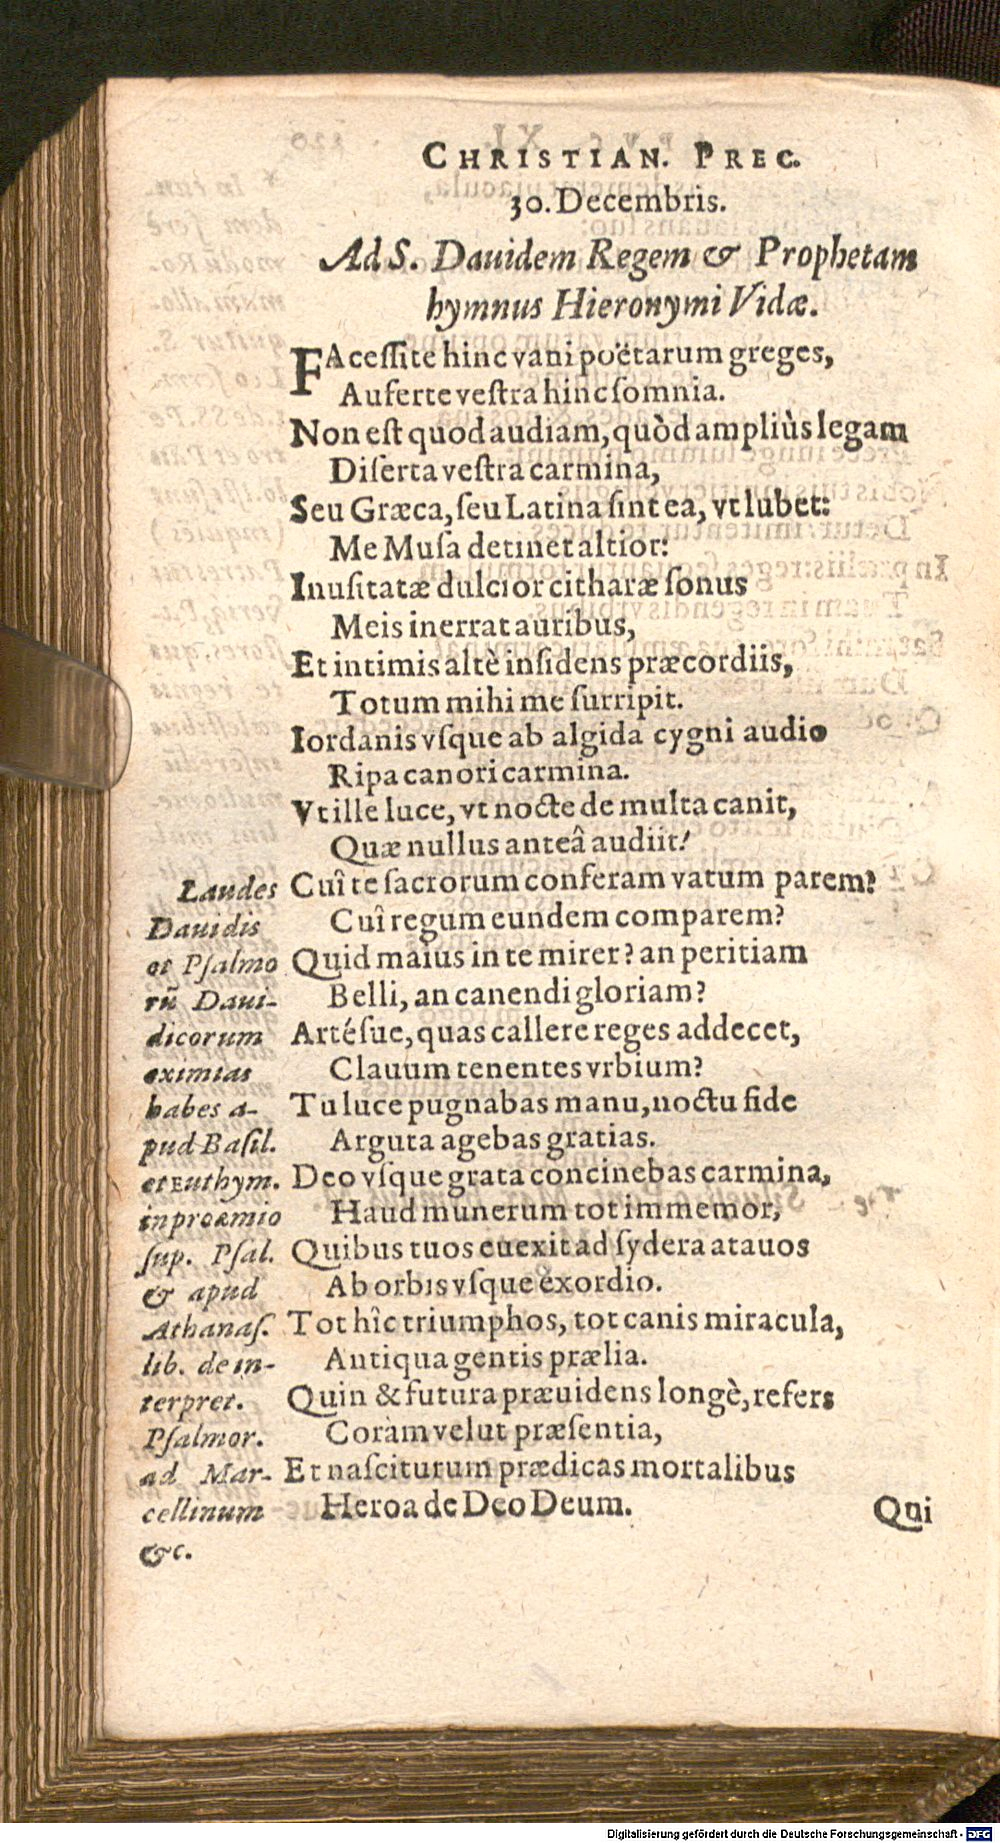 CHRISTIAN. PREC.
30. Decembris.
Ad S. Dauidem Regem & Prophetam
hymnus Hieronymi Vidæ.
FAceſſite hinc vani poëtarum greges,
Auferte veſtra hinc ſomnia.
Non eſt quod audiam, quòd ampliùs legam
Diſerta veſtra carmina,
Seu Græca, ſeu Latina ſint ea, vt lubet:
Me Muſa detinet altior:
Inuſitatæ dulcior citharæ ſonus
Meis inerrat auribus,
Et intimis altè inſidens præcordiis,
Totum mihi me ſurripit.
Iordanis vſque ab algida cygni audio
Ripa canori carmina.
Vt ille luce, vt nocte de multa canit,
Quæ nullus anteâ audiit!
Cuî te ſacrorum conferam vatum parem?
Cuî regum eundem comparem?
Quid maius in te mirer? an peritiam
Belli, an canendi gloriam?
Artéſue, quas callere reges addecet,
Clauum tenentes vrbium?
Tu luce pugnabas manu, noctu fide
Arguta agebas gratias.
Deo vſque grata concinebas carmina,
Haud munerum tot immemor,
Quibus tuos euexit ad ſydera atauos
Ab orbis vſque exordio.
Tot hîc triumphos, tot canis miracula,
Antiqua gentis prælia.
Quin & futura præuidens longè, refers
Coràm velut præſentia,
Et naſciturum prædicas mortalibus
Heroa de Deo Deum.
Qui
Laudes
Dauidis
et Pſalmo
rũ Daui-
dicorum
eximias
habes a-
pud Baſil.
et Euthym.
in proæmio
ſup. Pſal.
& apud
Athanaſ.
lib. de in-
terpret.
Pſalmor.
ad Mar-
cellinum
&c.
Digitalisierung gefördert durch die Deutsche Forschungsgemeinschaft - DFG